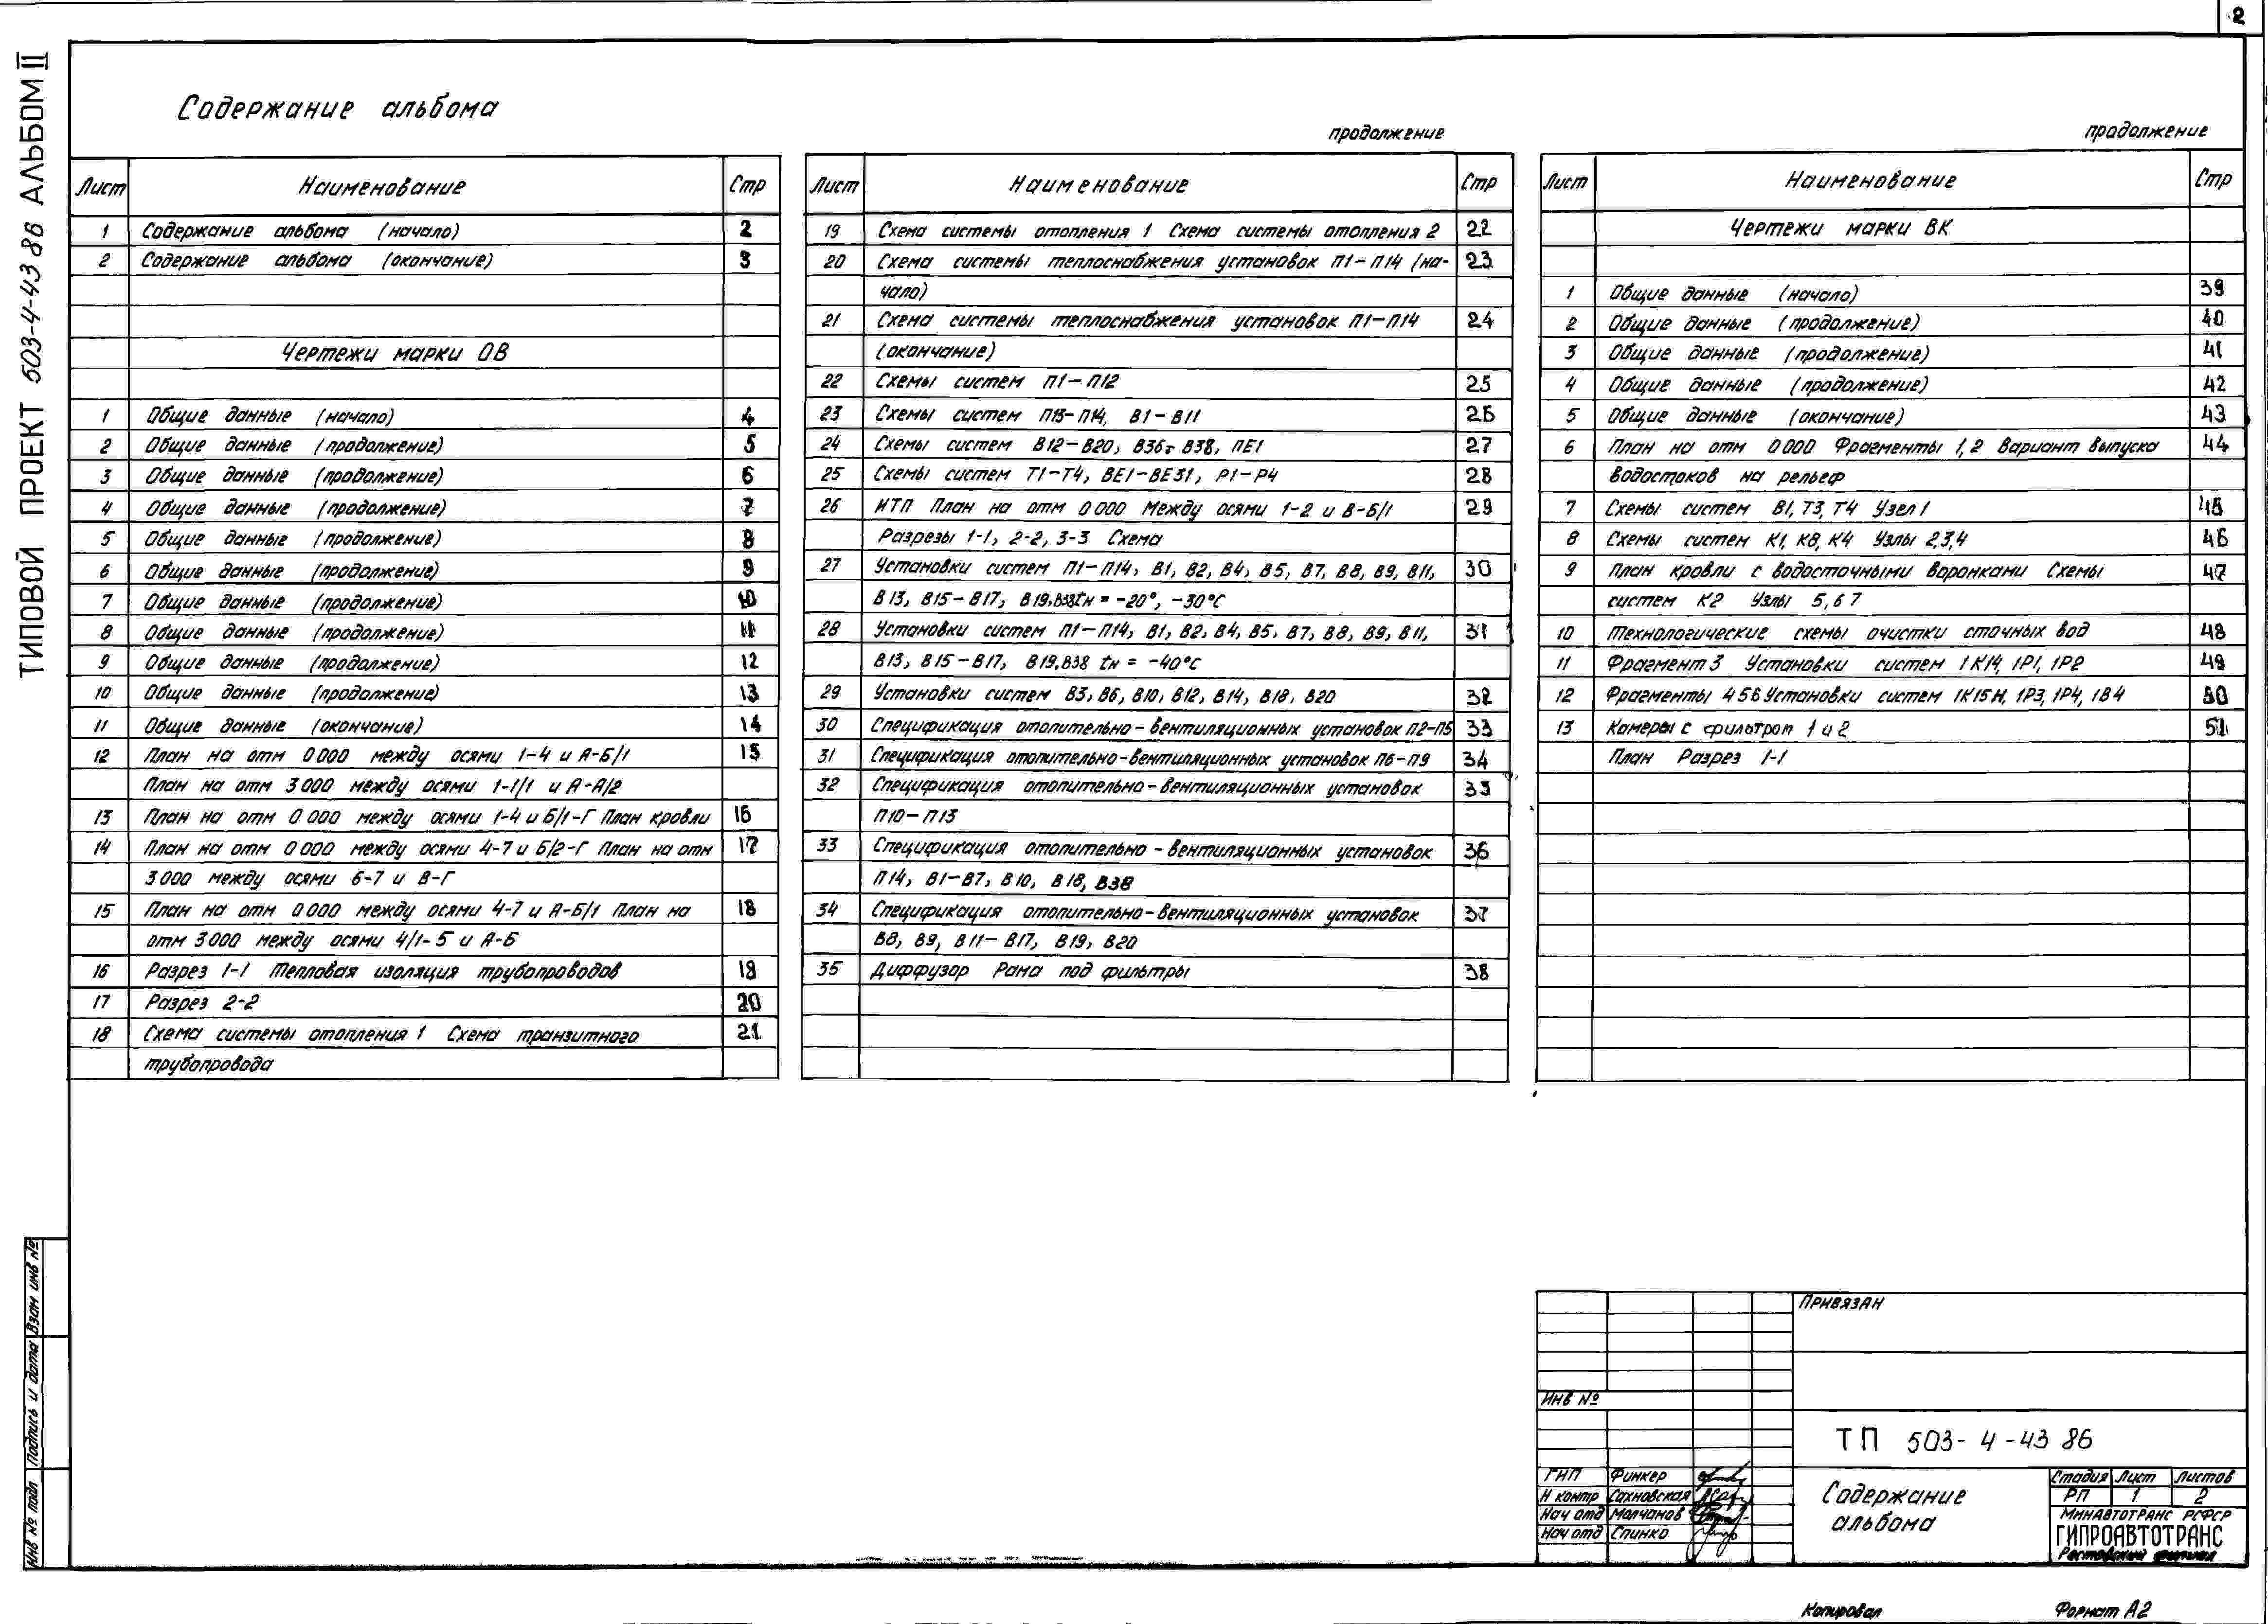 2
ТИПОВОЙ ПРОЕКТ 503-4-43 86 АЛЬБОМ II
Содержание альбома
Лист Наименование Стр
1 Содержание альбома (начало) 2
2 Содержание альбома (окончание) 3
Чертежи марки ОВ
1 Общие данные (начало) 4
2 Общие данные (продолжение) 5
3 Общие данные (продолжение) 6
4 Общие данные (продолжение) 7
5 Общие данные (продолжение) 8
6 Общие данные (продолжение) 9
7 Общие данные (продолжение) 10
8 Общие данные (продолжение) 11
9 Общие данные (продолжение) 12
10 Общие данные (продолжение) 13
11 Общие данные (окончание) 14
12 План на отм 0 000 между осями 1-4 и А-Б/1 15
План на отм 3 000 между осями 1-1/1 и А-А/2
13 План на отм 0 000 между осями 1-4 и Б/1-Г План кровли 16
14 План на отм 0 000 между осями 4-7 и Б/2-Г План на отм 17
3 000 между осями 6-7 и В-Г
15 План на отм 0 000 между осями 4-7 и А-Б/1 План на 18
отм 3 000 между осями 4/1-5 и А-Б
16 Разрез 1-1 Тепловая изоляция трубопроводов 19
17 Разрез 2-2 20
18 Схема системы отопления 1 Схема транзитного 21
трубопровода
продолжение
Лист Наименование Стр
19 Схема системы отопления 1 Схема системы отопления 2 22
20 Схема системы теплоснабжения установок П1-П14 (на- 23
чало)
21 Схема системы теплоснабжения установок П1-П14 24
(окончание)
22 Схемы систем П1-П12 25
23 Схемы систем П13-П14, В1-В11 26
24 Схемы систем В12-В20, В36÷В38, ПЕ1 27
25 Схемы систем Т1-Т4, ВЕ1-ВЕ31, Р1-Р4 28
26 ИТП План на отм 0 000 Между осями 1-2 и В-Б/1 29
Разрезы 1-1, 2-2, 3-3 Схема
27 Установки систем П1-П14, В1, В2, В4, В5, В7, В8, В9, В11, 30
В13, В15-В17, В19,В38 tн = -20°, -30°С
28 Установки систем П1-П14, В1, В2, В4, В5, В7, В8, В9, В11, 31
В13, В15-В17, В19,В38 tн = -40°С
29 Установки систем В3, В6, В10, В12, В14, В18, В20 32
30 Спецификация отопительно-вентиляционных установок П2-П5 33
31 Спецификация отопительно-вентиляционных установок П6-П9 34
32 Спецификация отопительно-вентиляционных установок 35
П10-П13
33 Спецификация отопительно-вентиляционных установок 36
П14, В1-В7, В10, В18, В38
34 Спецификация отопительно-вентиляционных установок 37
В8, В9, В11-В17, В19, В20
35 Диффузор Рама под фильтры 38
продолжение
Лист Наименование Стр
Чертежи марки ВК
1 Общие данные (начало) 39
2 Общие данные (продолжение) 40
3 Общие данные (продолжение) 41
4 Общие данные (продолжение) 42
5 Общие данные (окончание) 43
6 План на отм 0 000 Фрагменты 1,2 Вариант выпуска 44
водостоков на рельеф
7 Схемы систем В1, Т3, Т4 Узел 1 45
8 Схемы систем К1, К8, К4 Узлы 2,3,4 46
9 План кровли с водосточными воронками Схемы 47
систем К2 Узлы 5,6 7
10 Технологические схемы очистки сточных вод 48
11 Фрагмент 3 Установки систем 1К14, 1Р1, 1Р2 49
12 Фрагменты 4 5 6 Установки систем 1К15Н, 1Р3, 1Р4, 1В4 50
13 Камеры с фильтром 1 и 2 51
План Разрез 1-1
Привязан
Инв №
ТП 503-4-43 86
ГИП Финкер
Н контр Сахновская
Нач отд Молчанов
Нач отд Спинко
Содержание
альбома
Стадия Лист Листов
РП 1 2
Минавтотранс РСФСР
ГИПРОАВТОТРАНС
Ростовский филиал
Инв № подл Подпись и дата Взам инв №
Копировал Формат А2